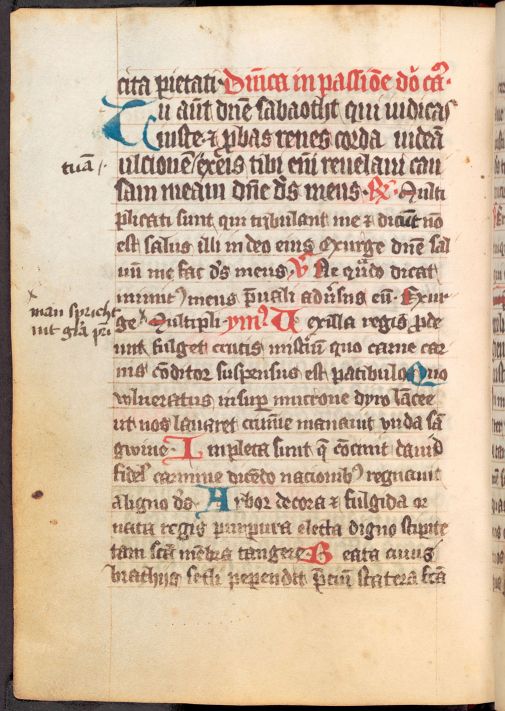 cita pietati· Dn̄ica in passiōe dō ca᷑·
Tu aut̄ dn̄e sabaotht qui iudicas
iuste· ⁊ ꝓbas renes corda uideā
tuā /·
ulcionē / exeis tibi en̄i reuelaui cau
sam meam dn̄e ds̄ meus· R̄· Multi
plicati sunt qui tribulant me ⁊ dicūt nō
est salus illi in deo eius exurge dn̄e sal
uū me fac ds̄ meus· V̄ Ne qn̄do dicat
inimicꝰ meus p̄uali adūsus eū· Exur
x man spricht
nit gl'a pr̄i
ge x Multipli· ymꝰ Uexilla regis ꝓde
unt fulget crucis misteriū quo carne car
nis cōditor suspensus est patibulo Quo
vulneratus insuꝑ mucrone dyro lancee
ut nos lauaret crimīe manauit vnda sā
gwine· Impleta sunt q̄ cōcinit dauid
fidel' carmine dicēdo nacionibꝰ regnauit
a ligno ds̄· Arbor decora ⁊ fulgida or
nata regis purpura electa digno stipite
tam scā mēbra tangere· Beata cuius
brachijs secli pependit p̄ciū statera fcā